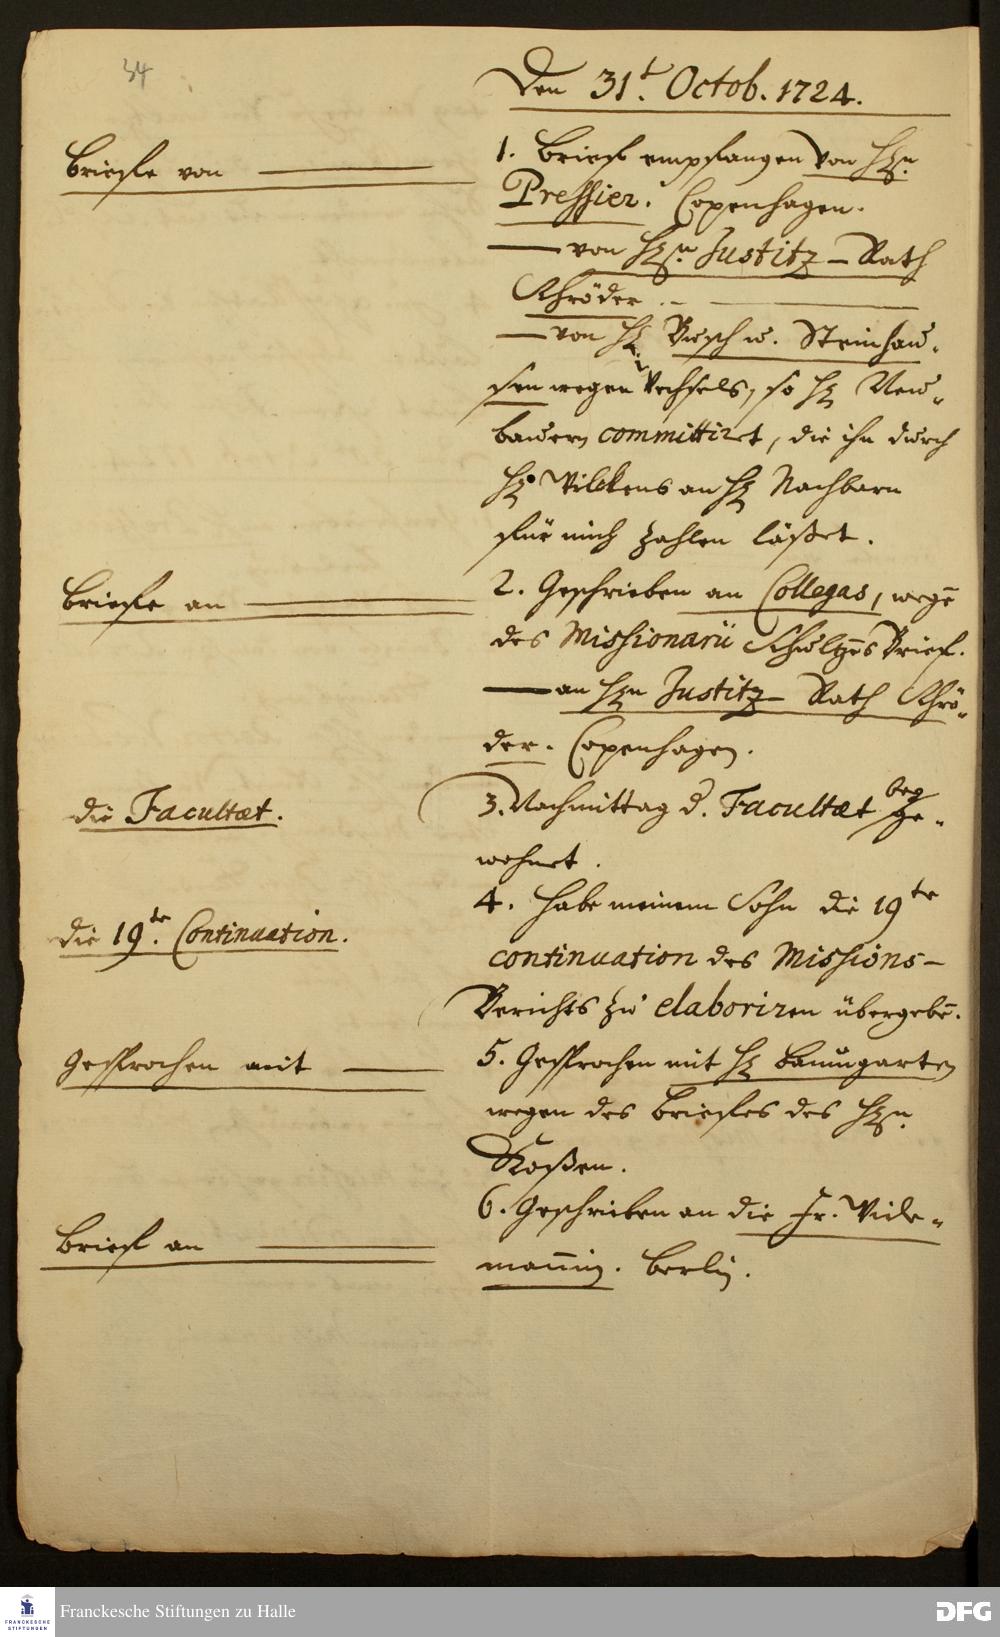 34
Den 31.t Octob. 1724.
Briefe von
1. Brief empfangen von Hrn.
Pressier. Copenhagen.
— von Hrn. Justitz-Rath
Schröder.
— von H. Busch u. Steinhau-
sen wegen Wechsels, so H. Neu-
bauern committiret, die ihn durch
H. Wilckens an H. Nachbarn
für mich zahlen läßet.
Briefe an
2. Geschrieben an Collegas, wegē
des Missionarii Schultzēs Brief.
— an Hrn Justitz-Rath Schrö-
der. Copenhagen.
die Facultæt.
3. Nachmittag d. Facultæt bey
ge-
wohnet.
die 19.te Continuation.
4. Habe meinem Sohn die 19te
continuation des Missions-
Berichts zu elaboriren übergebē.
Gesprochen mit
5. Gesprochen mit H. Baumgarten
wegen des Briefes des Hrn.
Roßen.
Brief an
6. Geschrieben an die Fr. Wide-
mannin. Berlin.
FRANCKESCHE
STIFTUNGEN
Franckesche Stiftungen zu Halle
DFG